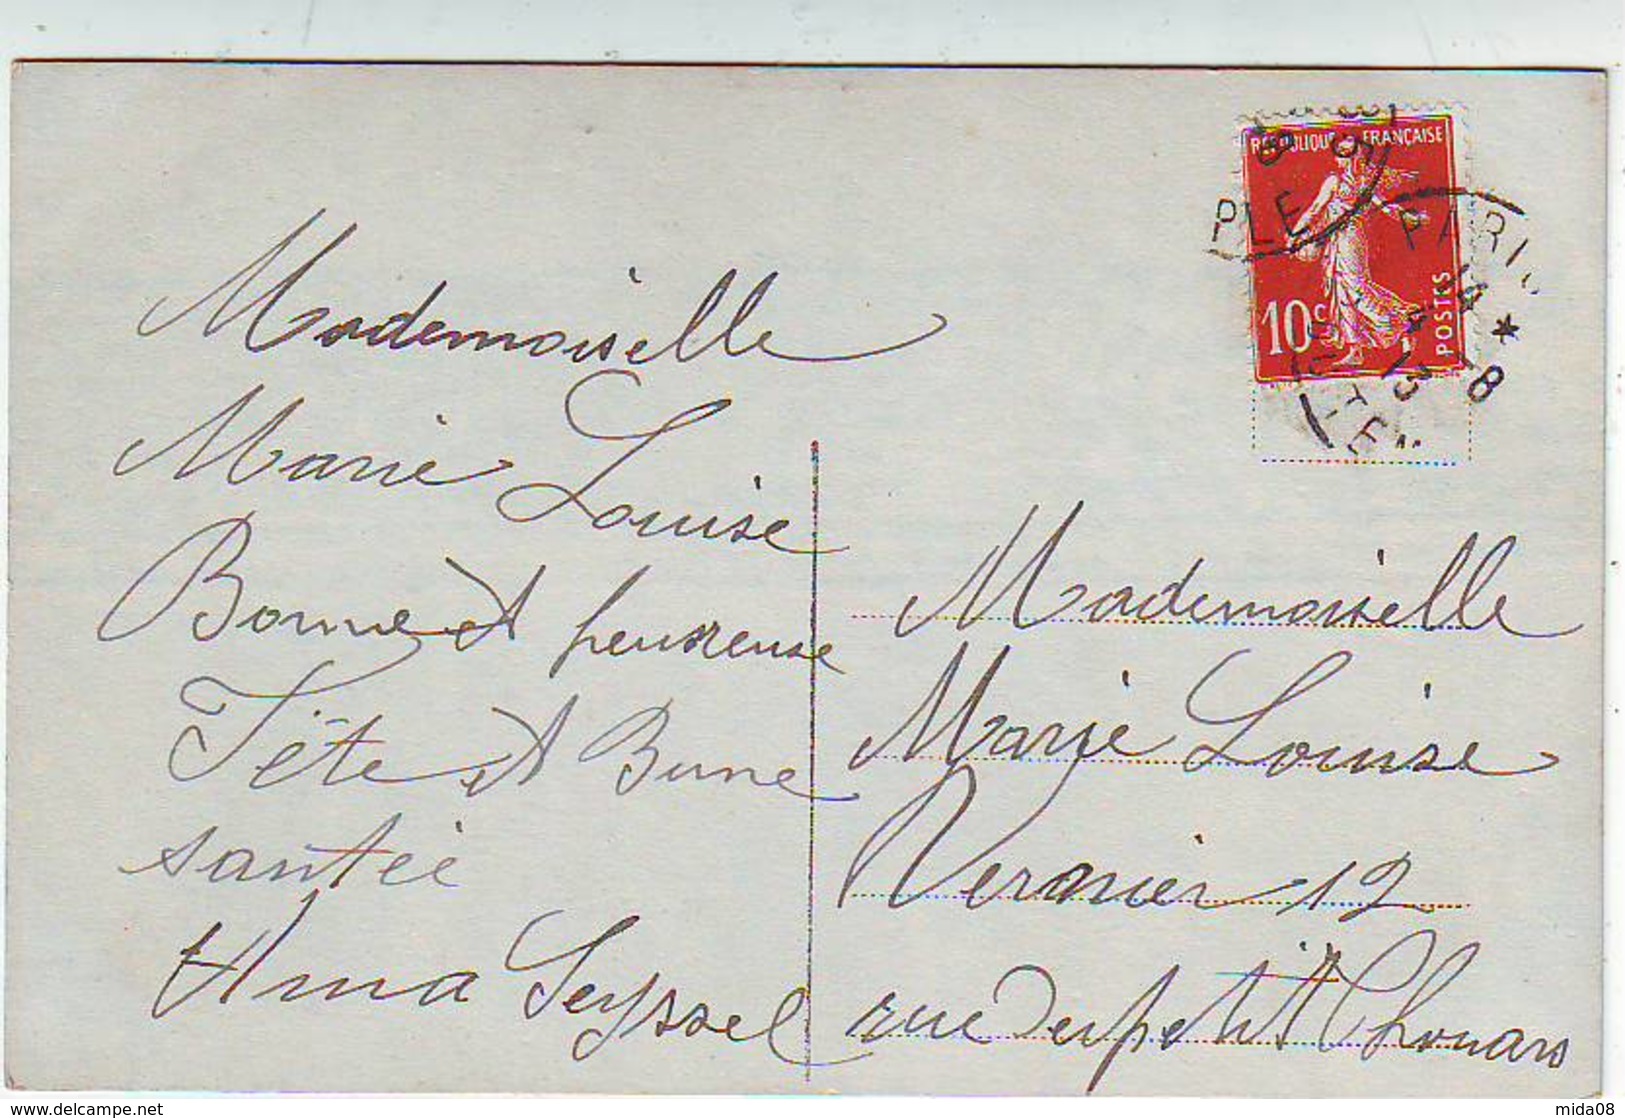 Mademoiselle
Marie Louise
Bonne et heureuse
Fête et Bune
santée
Anna Seyssel
REPUBLIQUE FRANÇAISE
10c
POSTES
PLE
PARIS
13
*
8
Mademoiselle
Marie Louise
Vernier 12
rue Dupetit Thouars
www.delcampe.net
mida08